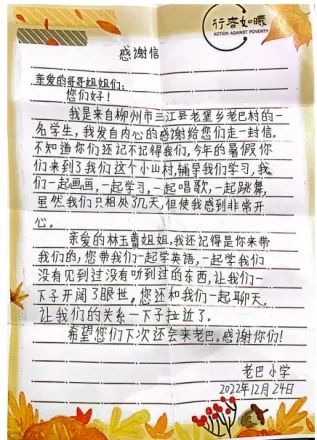 行客如曦
ACTION AGAINST POVERTY
感谢信
亲爱的哥哥姐姐们:
您们好!
我是来自柳州市三江县老堡乡老巴村的一
名学生,我发自内心的感谢给您们走一封信。
不知道你们还记不记得我们,今年的暑假你
们来到了我们这个小山村,辅导我们学习,我
们一起画画,一起学习,一起唱歌,一起跳舞,
虽然我们只相处了几天,但使我感到非常开
心。
亲爱的林玉蔷姐姐,我还记得是你来带
我们的,您带我们一起学英语,一起学我们
没有见到过没有听到过的东西,让我们一
下子开阔了眼世。您还和我们一起聊天,
让我们的关系一下子拉近了。
希望您们下次还会来老巴,感谢你们!
老巴小学
2022年12月24日